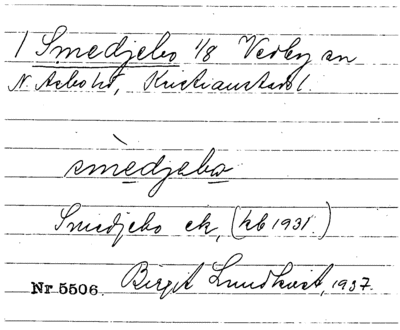 1 Smedjebo 1/8 Verby sn
N. Asbo hd, Kristianstads l.
smèdjebo
Smedjebo ek, (kb 1931.)
Nr 5506. Birgit Lundkvist, 1937.